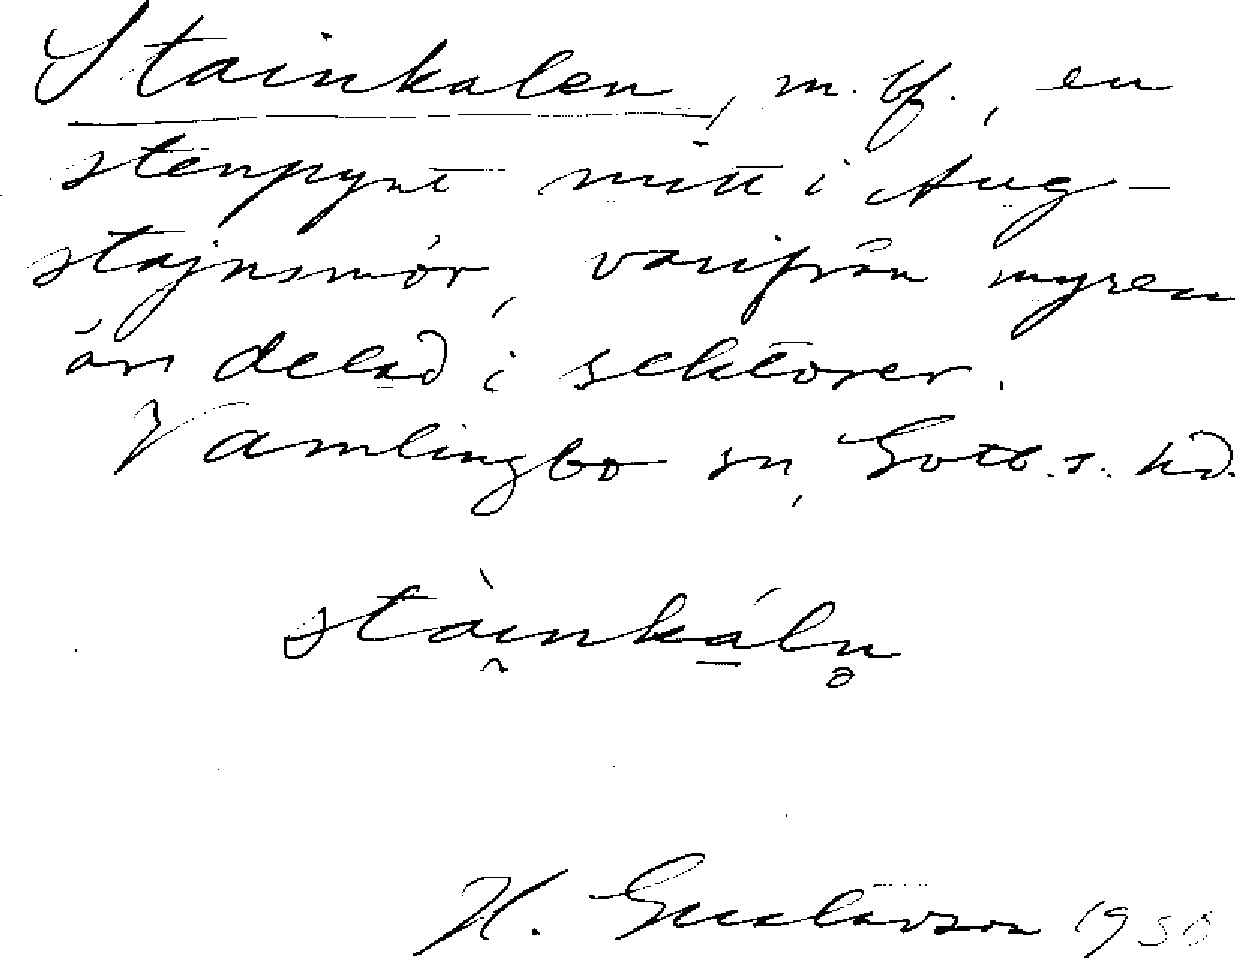 Stainkalen, m. bf., en
stenpynt mitt i Aug-
stajnsmör, varifrån myren
är delad i sektorer.
Vamlingbo sn, Gotl. s. hd.
stàinkáln
H. Gustavson 1930